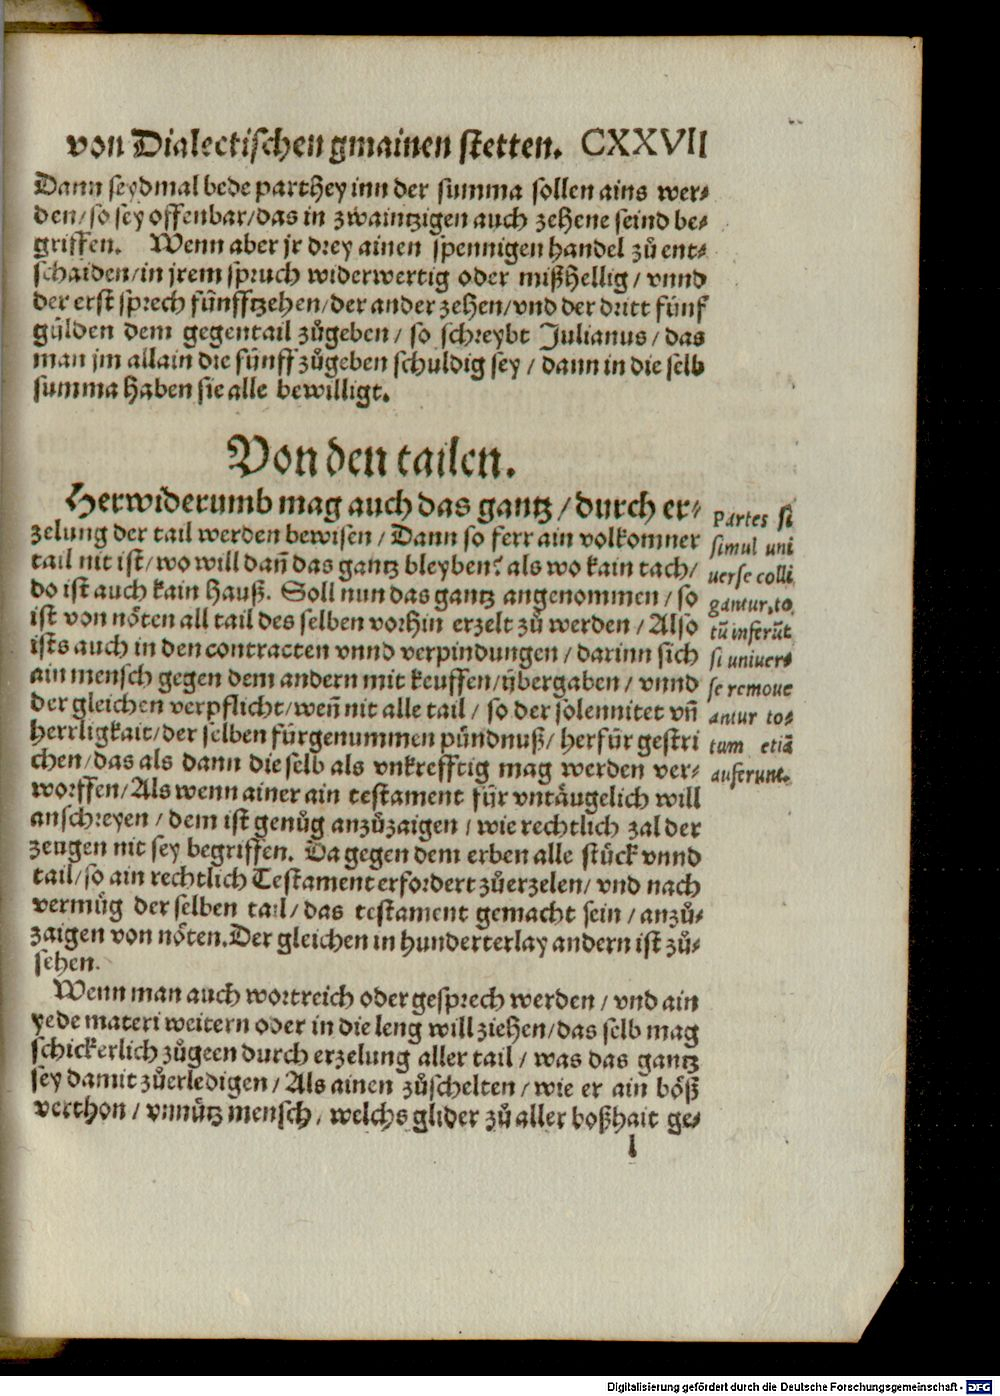 von Dialectischen gmainen stetten. CXXVII
Dann seydmal bede parthey inn der summa sollen ains wer⸗
den/so sey offenbar/das in zwaintzigen auch zehene seind be⸗
griffen. Wenn aber jr drey ainen spennigen handel zů ent⸗
schaiden/in jrem spruch widerwertig oder mißhellig/vnnd
der erst sprech fünfftzehen/der ander zehen/vnd der dritt fünf
gülden dem gegentail zůgeben/so schreybt Julianus/das
man jm allain die fünff zůgeben schuldig sey/dann in die selb
summa haben sie alle bewilligt.
Von den tailen.
Herwiderumb mag auch das gantz/durch er⸗
zelung der tail werden bewisen/Dann so ferr ain volkomner
tail nit ist/wo will dañ das gantz bleyben? als wo kain tach/
do ist auch kain hauß. Soll nun das gantz angenommen/so
ist von nöten all tail des selben vorhin erzelt zů werden/Also
ists auch in den contracten vnnd verpindungen/darinn sich
ain mensch gegen dem andern mit keuffen/übergaben/vnnd
der gleichen verpflicht/weñ nit alle tail/so der solennitet vñ
herrligkait/der selben fürgenummen pündnuß/herfür gestri
chen/das als dann die selb als vnkrefftig mag werden ver⸗
worffen/Als wenn ainer ain testament für vntäugelich will
anschreyen/dem ist genůg anzůzaigen/wie rechtlich zal der
zeugen nit sey begriffen. Da gegen dem erben alle stück vnnd
tail/so ain rechtlich Testament erfordert zůerzelen/vnd nach
vermüg der selben tail/das testament gemacht sein/anzů⸗
zaigen von nöten. Der gleichen in hunderterlay andern ist zů⸗
sehen.
Wenn man auch wortreich oder gesprech werden/vnd ain
yede materi weitern oder in die leng will ziehen/das selb mag
schickerlich zůgeen durch erzelung aller tail/was das gantz
sey damit zůerledigen/Als ainen zůschelten/wie er ain böß
verthon/vnnütz mensch/welchs glider zů aller boßhait ge⸗
l
Partes si
simul uni
uerse colli
gantur, to
tũ inferũt
si uniuer⸗
se remoue
antur to⸗
tum etiã
auferunt.
Digitalisierung gefördert durch die Deutsche Forschungsgemeinschaft - DFG